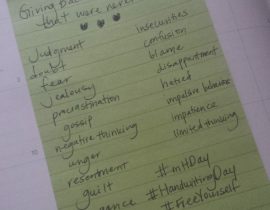 Giving
that were never
Judgment
doubt
fear
jealousy
procrastination
gossip
negative thinking
anger
resentment
guilt
insecurities
confusion
blame
disappointment
hatred
impulsive behavior
impatience
limited thinking
#mHDay
#HandwritingDay
#FreeYourself